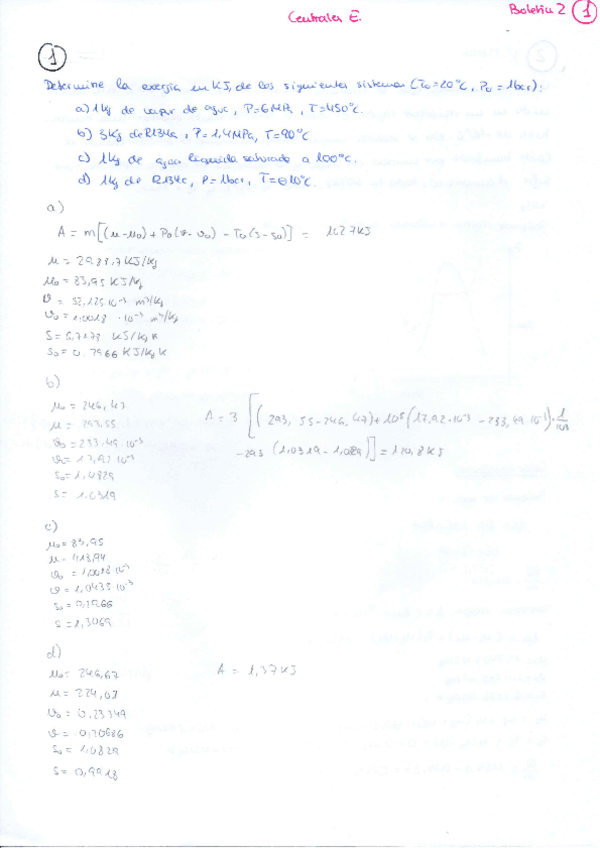 Centrales E.
Boletín 2 1
1
Determine la exergía en KJ, de los siguientes sistemas (To=20°C, Po=1bar):
a) 1kg de vapor de agua, P=6MPa, T=450°C.
b) 3kg de R134a, P=1,4MPa, T=90°C
c) 1kg de agua líquida saturada a 100°C.
d) 1kg de R134a, P=1bar, T=-10°C.
a)
A = m[(u-u₀)+P₀(v-v₀)-T₀(s-s₀)] = 1027KJ
u = 2988,7 KJ/kg
u₀ = 83,95 KJ/kg
v = 52,125·10⁻³ m³/kg
v₀ = 1,0018 ·10⁻³ m³/kg
s = 6,7178 KJ/kg K
s₀ = 0,2966 KJ/kg K
b)
u₀ = 246,47
u = 293,55
v₀ = 233,49·10⁻³
v = 17,92·10⁻³
s₀ = 1,0829
s = 1,0319
A = 3 [(293,55-246,47)+10⁵(17,92·10⁻³-233,49·10⁻³)·1/10³
-293 (1,0319-1,089)] = 110,8KJ
c)
u₀ = 83,95
u = 418,94
v₀ = 1,0018·10⁻³
v = 1,0435·10⁻³
s₀ = 0,2966
s = 1,3069
d)
u₀ = 246,67
u = 224,07
v₀ = 0,23349
v = 0,20686
s₀ = 1,0829
s = 0,9918
A = 1,37KJ